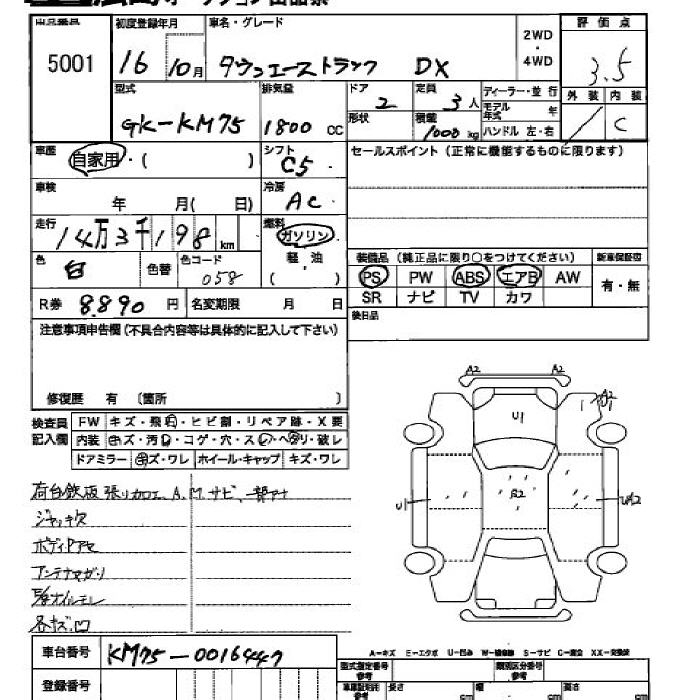 出品番号 初度登録年月 車名・グレード 2WD・4WD 評価点
5001 16年 10月 タウンエーストラック DX 3.5
型式 排気量 ドア 定員 ディーラー・並行 外装 内装
GK-KM75 1800cc 2 3人 モデル年式 年 C
形状 積載 1000kg ハンドル 左・右
車歴 自家用・( ) シフト C5 セールスポイント(正常に機能するものに限ります)
車検 年 月( 日) 冷房 AC
走行 14万3千198km 燃料 ガソリン
色 白 色替 色コード 058 軽・油 ( )
装備品(純正品に限り○をつけてください) 新車保証図
PS PW ABS エアB AW 有・無
SR ナビ TV カワ
R券 8,890円 名変期限 月 日
後日品
注意事項申告欄(不具合内容等は具体的に記入して下さい)
修復歴 有 〔箇所 〕
検査員記入欄 FW キズ・飛石・ヒビ割・リペア跡・X要
内装 キズ・汚レ・コゲ・穴・スレ・ヘタリ・破レ
ドアミラー キズ・ワレ ホイール・キャップ キズ・ワレ
荷台鉄板張り加工、A、M、サビ、一部アナ
ジャッキ欠
ボディPアセ
アンテナマガリ
各キズ凹
A2 A2
U1
A2
U1 A2 UA2
A-キズ E-エクボ U-凹み W-補修跡 S-サビ C-腐食 XX-交換済
車台番号 KM75-0016447
登録番号
型式指定番号 参考 類別区分番号 参考
長さ cm 幅 cm 高さ cm